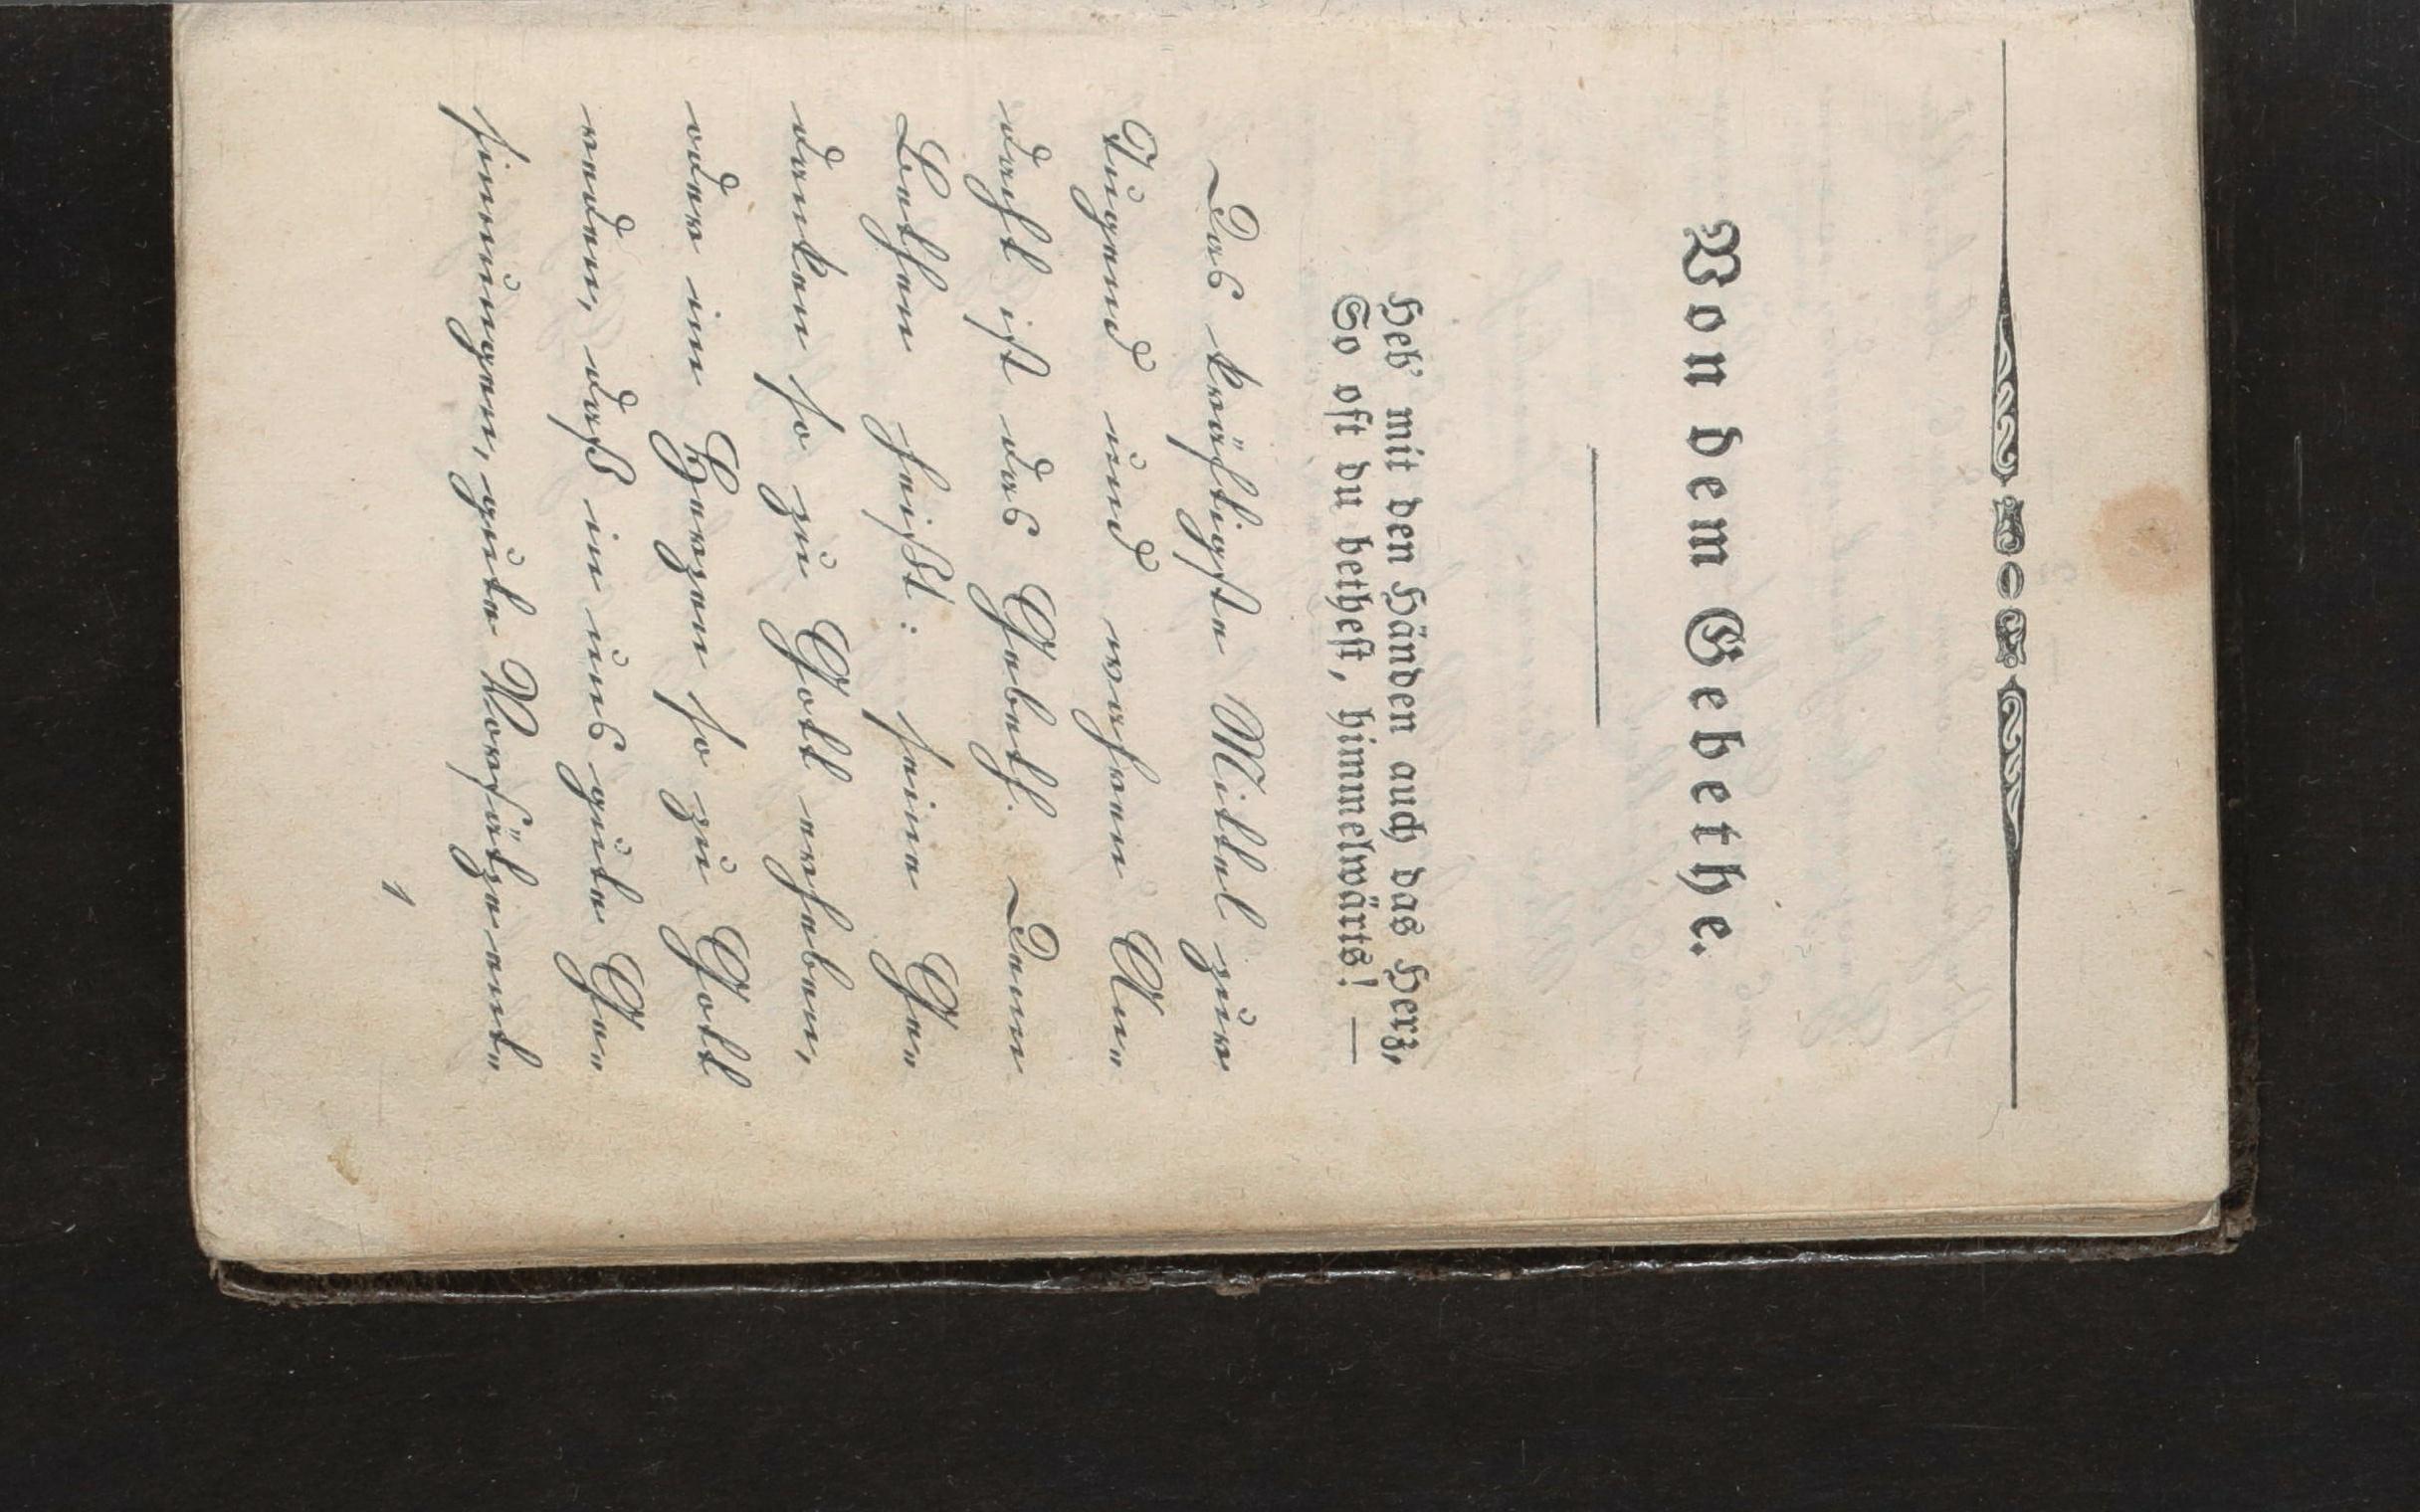 Von dem Gebethe.
Heb' mit den Händen auch das Herz,
So oft du bethest, himmelwärts! —
Das kräftigste Mittel zur
Tugend und wahren An-
dacht ist das Gebeth. Denn
Bethen heißt: seine Ge-
danken so zu Gott erheben,
oder im Herzen so zu Gott
reden, daß in uns gute Ge-
sinnungen, gute Vorsätze ent-
1